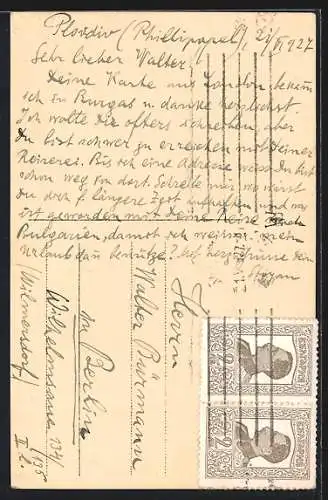 Plovdiv (Phillipopel), 21/V 1927
Sehr lieber Walter,
Deine Karte aus London bekam
ich in Burgas u danke herzlichst.
Ich wollte die öfters schreiben, aber
Du bist schwer zu erreichen mit Deiner
Reiserei. Bis ich eine Adresse weiss Du bist
schon weg von dort. Schreibe mir, wo wirst
Du dich f. längere Zeit aufhalten und was
ist geworden mit Deine Reise nach
Bulgarien, damit ich weiss mein
Urlaub dan benütze?
Herrn
Walter
in Berlin
Wilhelmsaue 134
/Wilmersdorf/
II